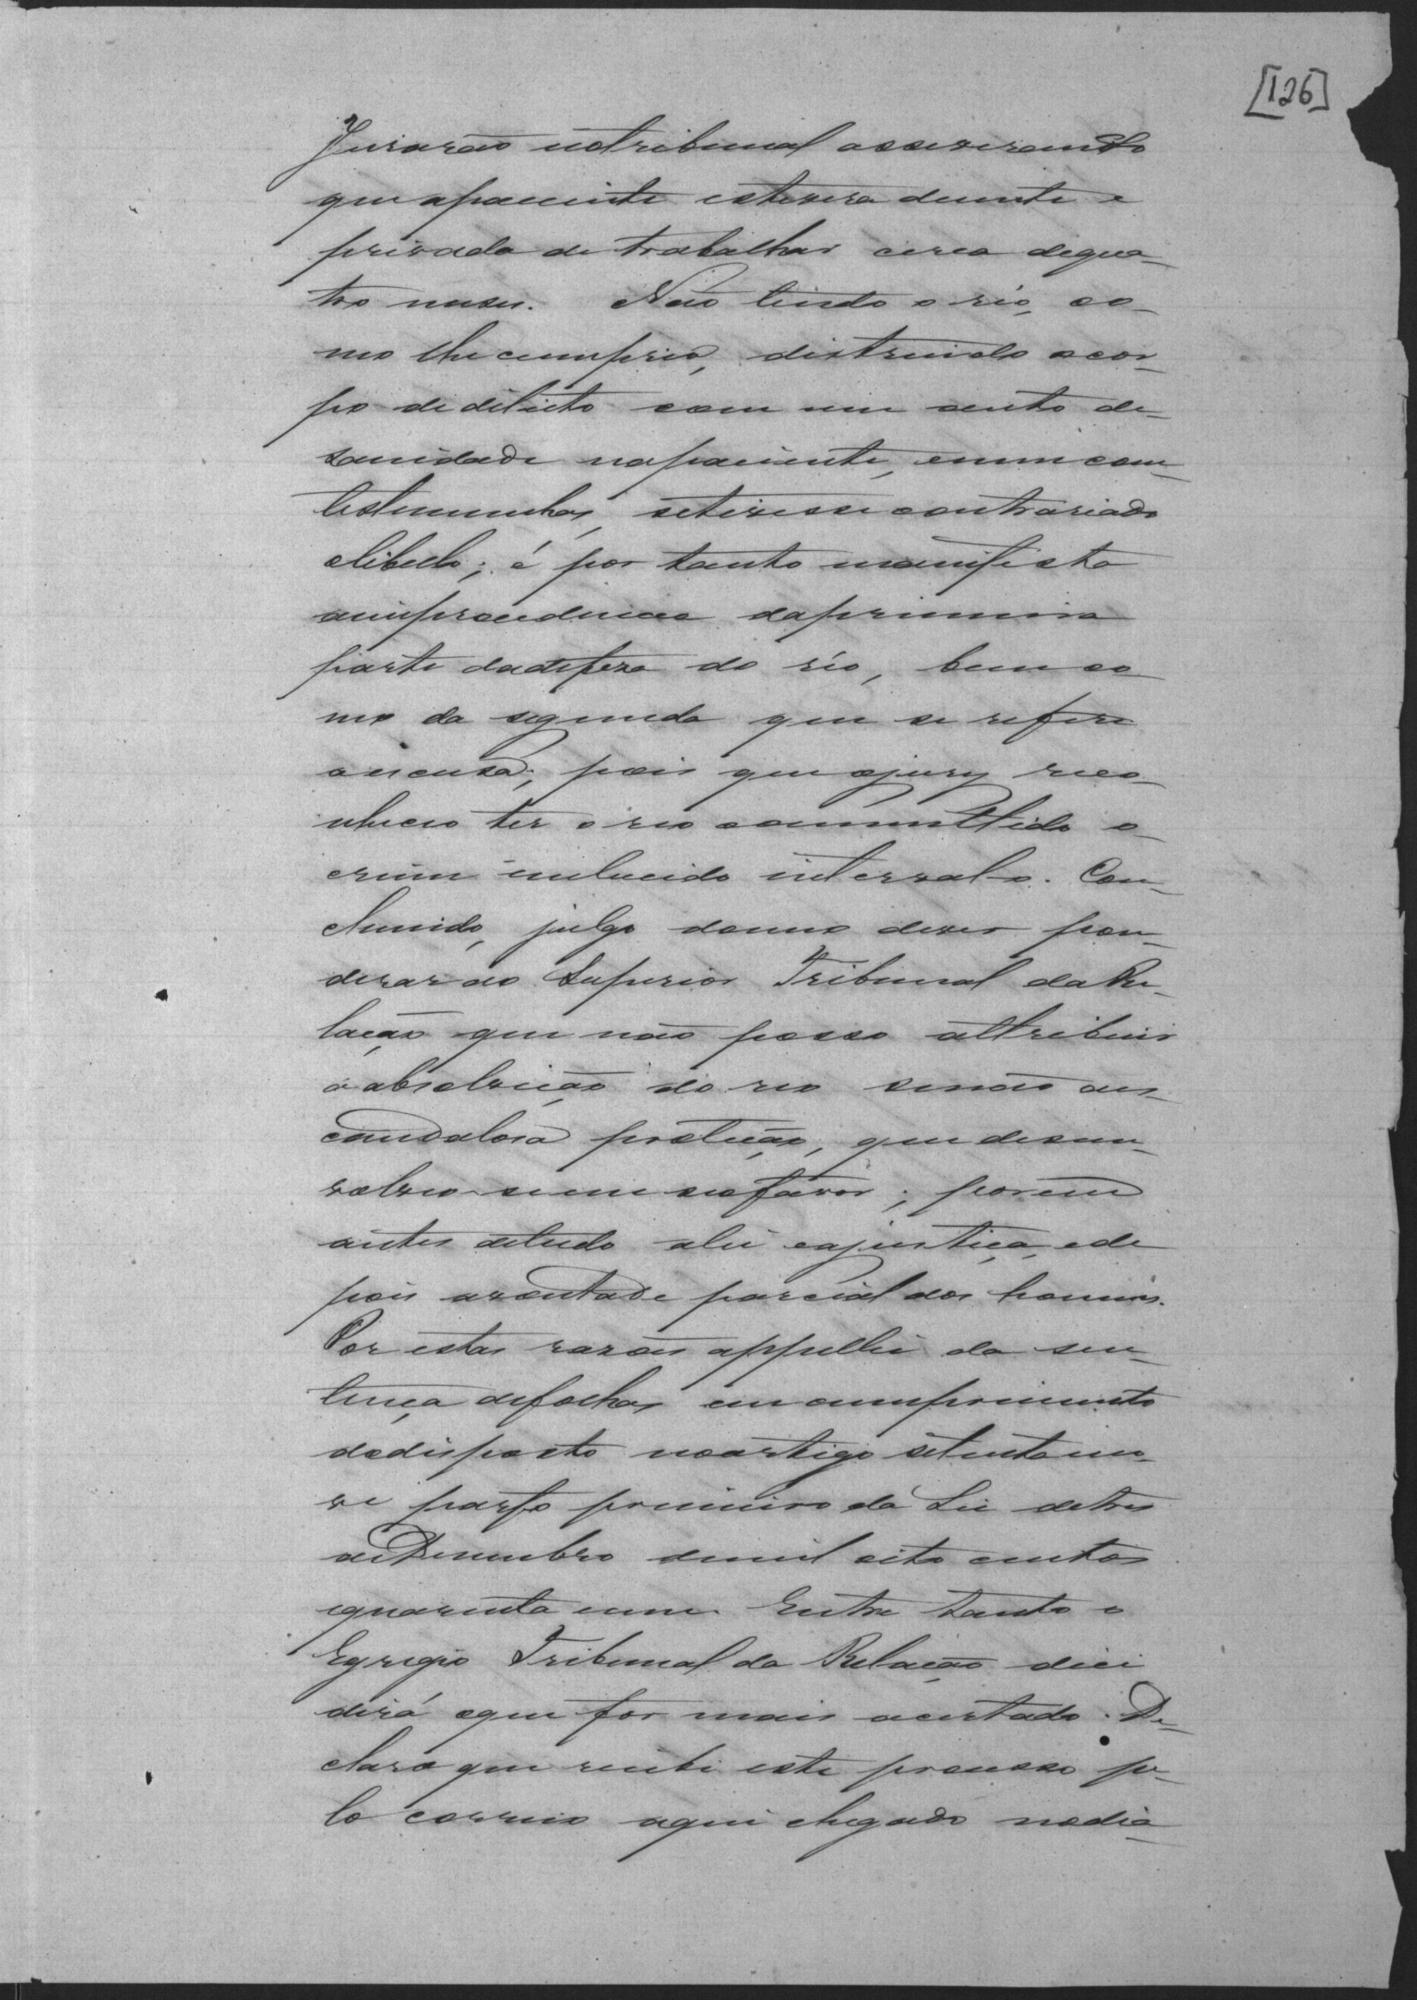 [126]
Jurarão notribunal asseverando
que apaciente estivera duente e
privada de trabalhar cerca dequa-
tro meses. Não tendo o réo, co-
mo lhe cumpria, distruido ocor-
po de delicto com um auto de
sanidade napaciente, enem com
testemunhas, setivesse contrariado
olibello; é por tanto manifesta
aimprocedencia daprimeira
parte dadefeza do réo, bem co
mo da segunda que se refere
aicusa; pois que ojury reco-
nheceo ter o reo committido o
crime emlucido intervalo. Con-
cluindo, julgo domeo dever pon-
derar ao Superior Tribunal da Re-
lação que não posso attribuir
a absolvição do reo senão aes-
candalosa proteção, que desem-
volveo-se em seo favor; porem
antes detudo alei eajustiça, ede
pois avontade parcial dos homens.
Por estas razões appellei da sen-
tença defolhas em cumprimento
dodisposto noartigo setenta no-
ve parfo primeiro da Lei detres
deDezembro demil oito centos
equarenta eum. Entre tanto o
Egregio Tribunal da Relação deci
dirá oque for mais acertado. De-
claro que recebi este processo pe-
lo correio aqui chegado nodia